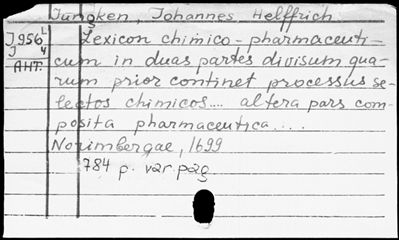 Jüngken, Johannes Helffrich
J956L Lexicon chimico-pharmaceuti-
J 4 cum in duas partes divisum qua-
AHT. rum prior continet processus se-
lectos chimicos.... altera pars com-
posita pharmaceutica....
Norimbergae, 1699
784 p. var. pag.